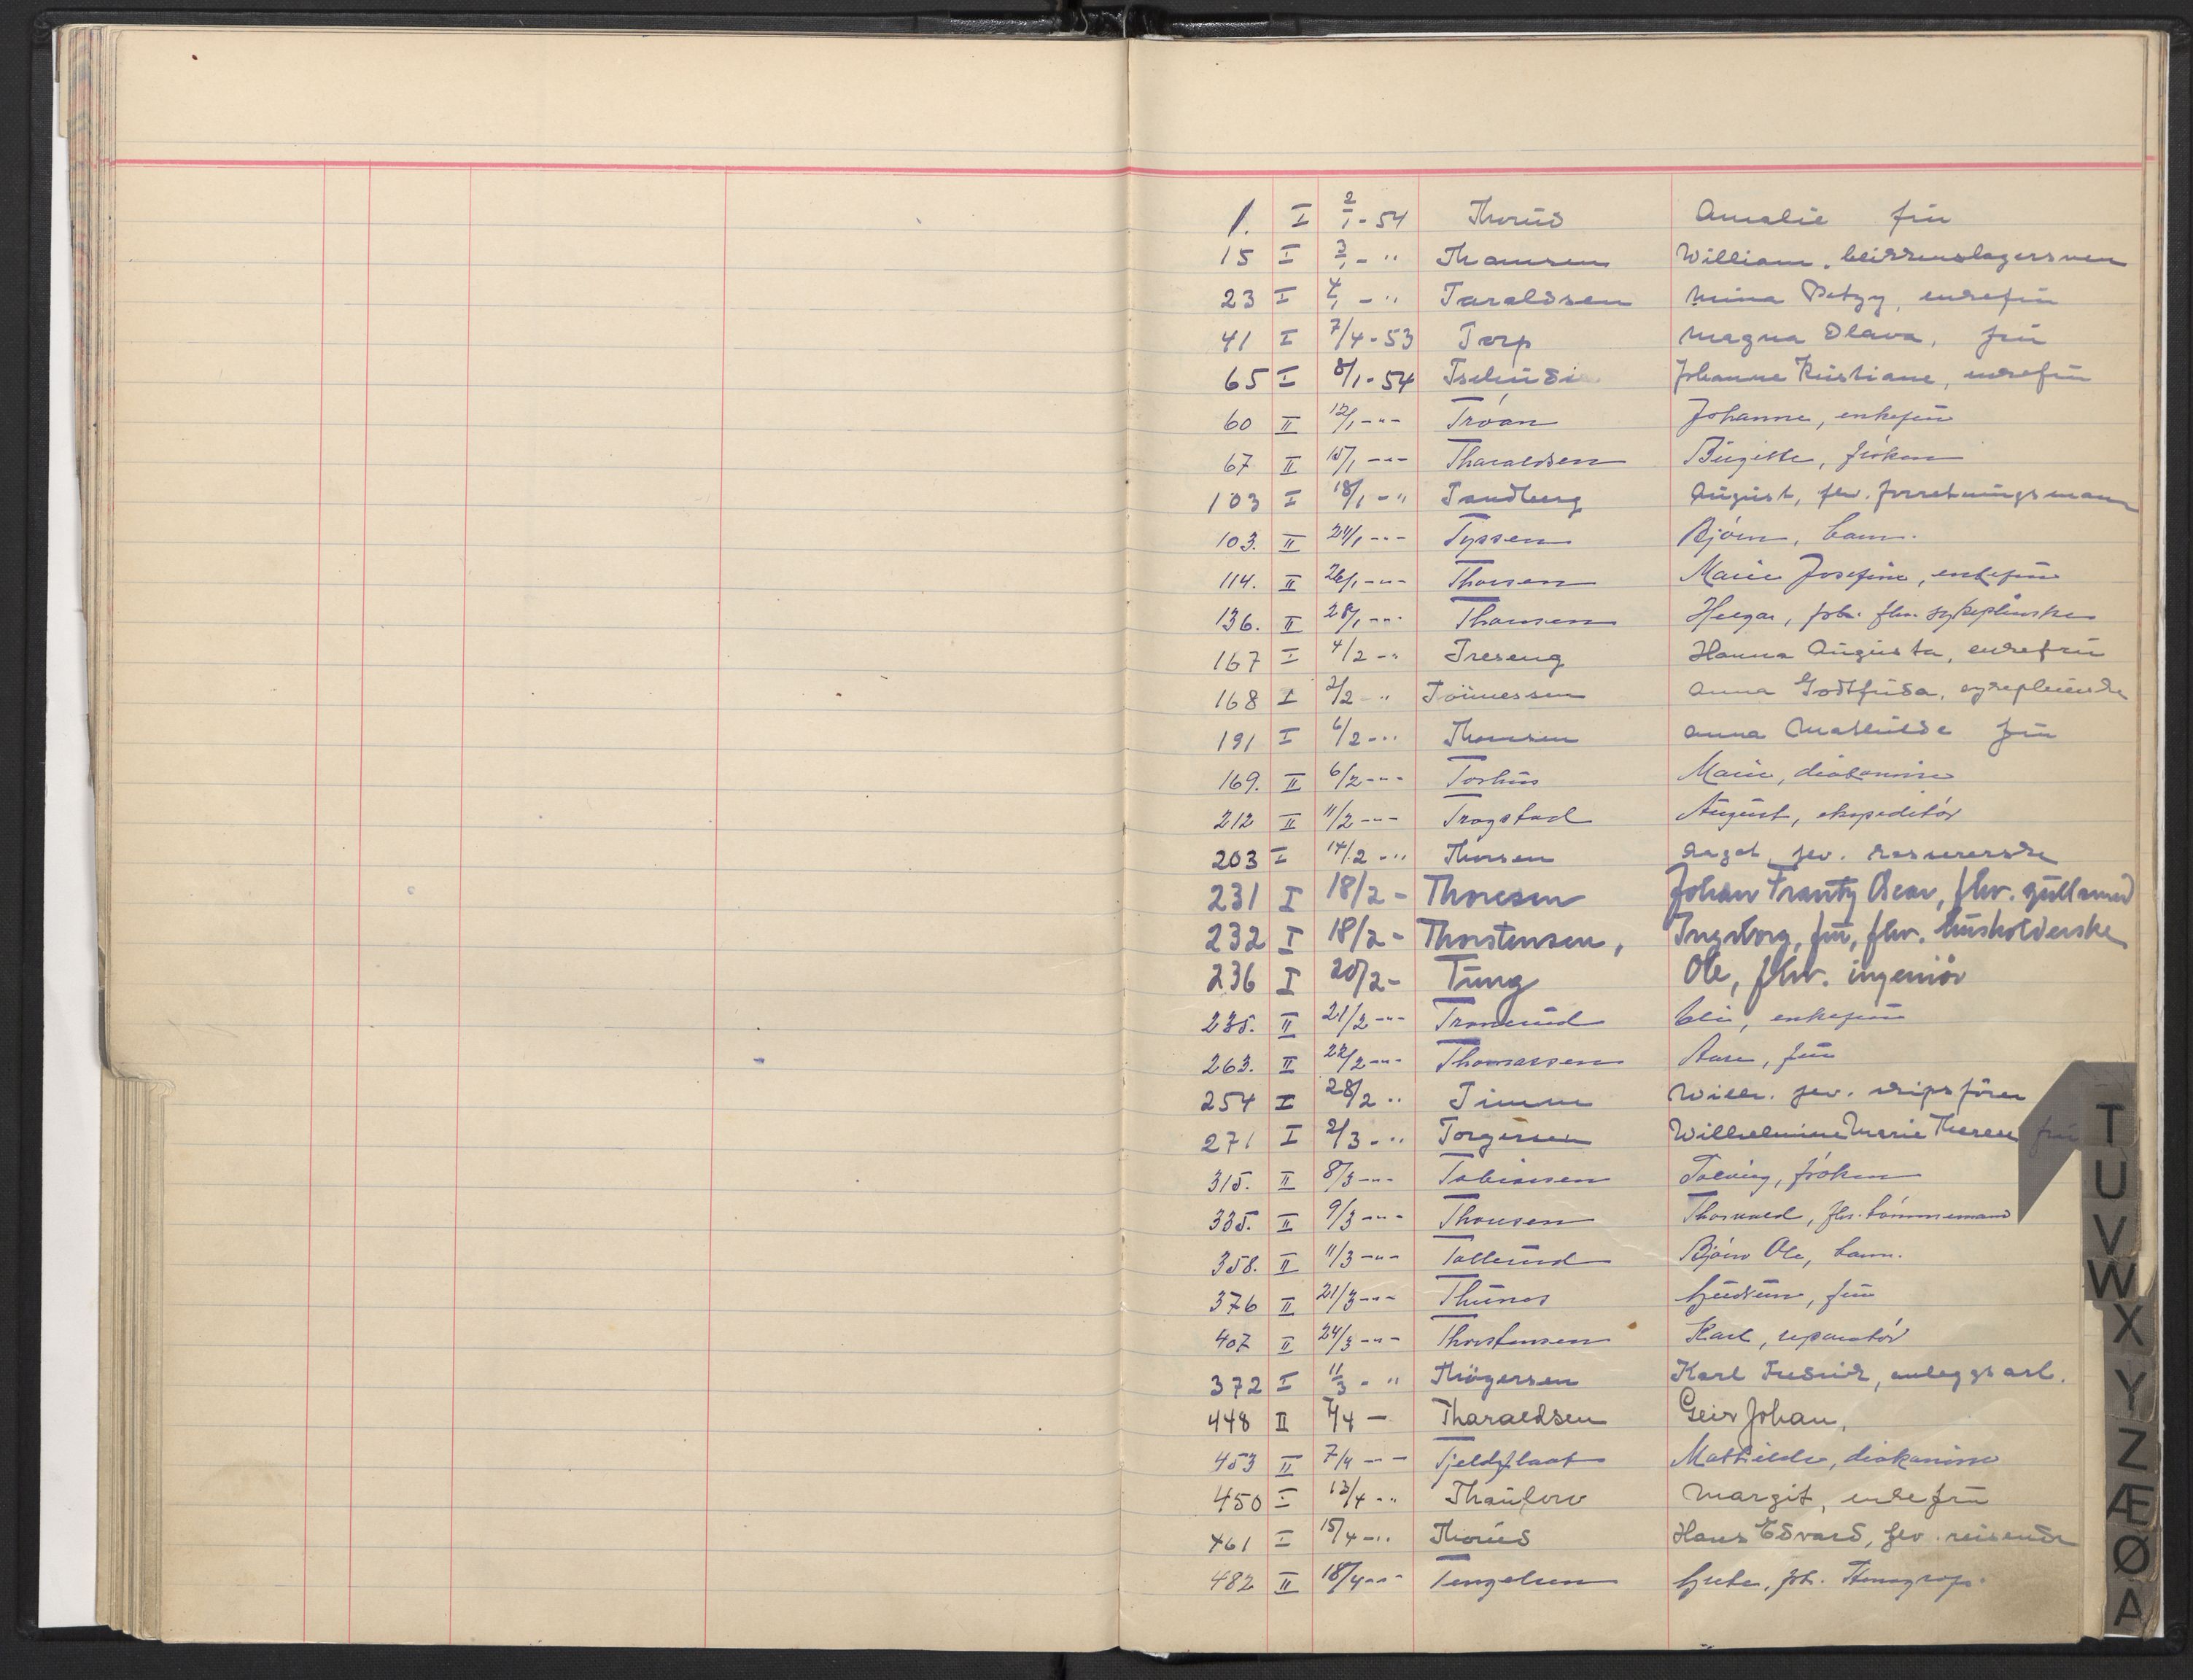 1. I 2/1-54 Thorud Amalie fru
15 I 3/1-" Thomsen William, blikkenslagersvenn
23 I 4/1-" Taraldsen Mina Petzy, enkefru
41 I 7/4-53 Torp Magna Olava, fru
65 I 8/1-54 Tschudi Johanne Kristiane, enkefru
60 II 12/1-"- Tróan Johanne, enkefru
67 II 15/1-"- Tharaldsen Birgitte, frøken
103 I 18/1-" Tandberg August, fhv. forretningsmann
103. II 24/1-"- Tyssen Bjórn, barn.
114. II 26/1-"- Thorsen Marie Josefine, enkefru
136. II 28/1-"- Thomsen Helga, frk. fhv. sykepleierske
167 I 4/2-" Treseng Hanna Augusta, enkefru
168 I 2/2-" Tönnessen Anna Godtfrida, sykepleierske
191 I 6/2-" Thomsen Anna Mathilde fru
169. II 6/2-"- Torhus Marie, diakonisse
212 II 11/2-"- Trogstad August, ekspeditór
203 I 14/2-" Thorsen Aagot, fhv. kassererske
231 I 18/2- Thoresen Johan Frantz Oscar, fhv. gullsmed
232 I 18/2- Thorstensen, Ingeborg, fru, fhv. husholderske
236 I 20/2- Tung Ole, fhv. ingeniör
235. II 21/2-"- Tronerud enkefru
263. II 22/2-"- Thomassen Aase, fru
254 I 28/2 " Timm Willi. fhv. skipsförer
271 I 2/3-" Torgersen Wilhelmine Marie Therese fru
315. II 8/3-"- Tobiassen Solveig, fröken
335. II 9/3-"- Thorsen Thorvald, fhv. tömmermann
358. II 11/3-"- Tollerud Bjórn Ole, barn.
376 II 21/3-"- Thunes Gudrun, fru
407 II 24/3-"- Thorstensen Karl, reparatór
372 I 11/3-" Thögersen Karl Fredrik, anleggsarb.
448 II 7/4 - Tharaldsen Geir Johan,
453 II 7/4 -"- Tjeldflaat Mathilde, diakonisse
450 I 13/4-" Thaulow Margit, enkefru
461 I 15/4-" Thorud Hans Edvard, fhv. reisende
482 II 18/4-"- Tengelsen frk. Stenograf.
T
U
V
W
X
Y
Z
Æ
Ø
A